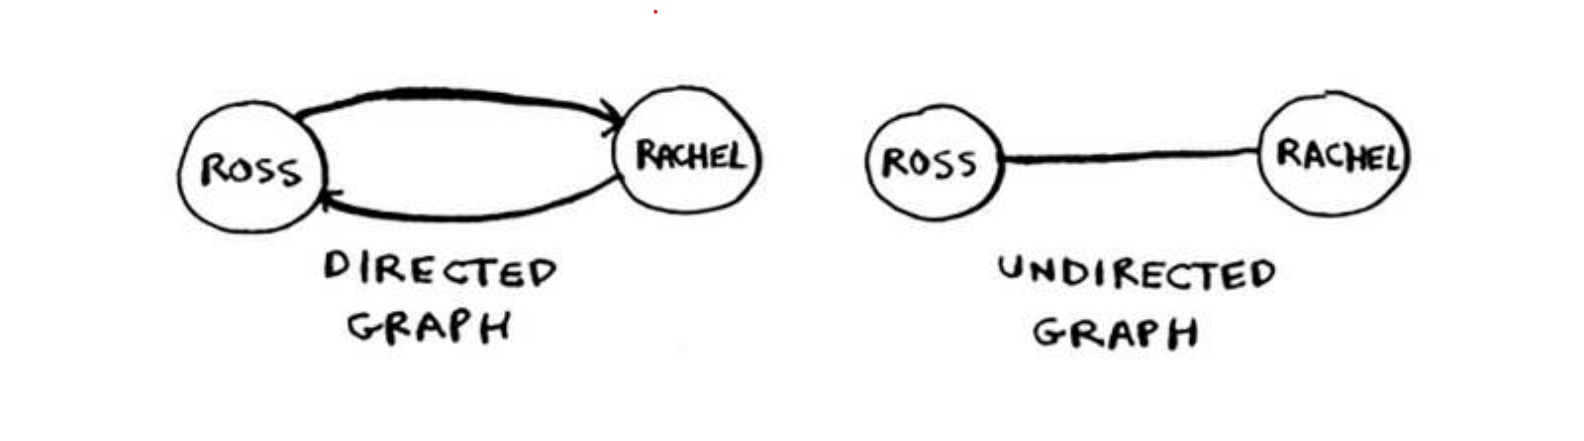 ROSS
RACHEL
DIRECTED
GRAPH
ROSS
RACHEL
UNDIRECTED
GRAPH